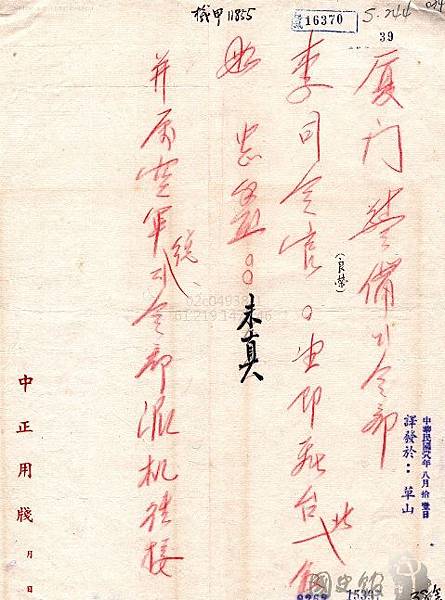 機甲11855
16370
S.244
39
厦门警備司令部
李司令官。即飛台北一
(良榮)
。未真
并屬空軍總司令部派机往接
中華民國卅八年八月拾壹日
譯發於：草山
中正用牋 月 日
國史館